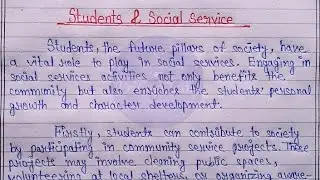 Students & Social Service
Students, the future pillars of society, have
a vital role to play in social services. Engaging in
social services activities not only benefits the
community but also enriches the students' personal
growth and character development.
Firstly, students can contribute to society
by participating in community service projects. These
projects may involve cleaning public spaces,
volunteering at local shelters, or organizing aware-